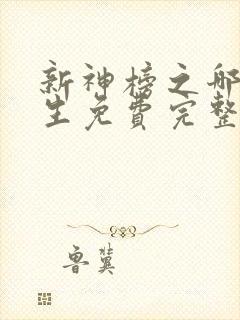 新神榜之哪
生免费完整
鲁冀